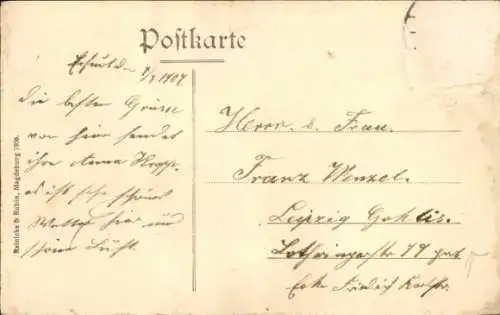 Postkarte
7/7 1907
die besten Grüsse
von hier sendet
ihre Anna
es ist sehr schönes
Wetter hier und
schöne Luft.
Herrn u. Frau.
Franz Wenzel.
Leipzig Gohlis.
Lothringerstr 79 prt
Ecke Friedrich Karlstr.
Reinicke & Rubin, Magdeburg 1906.